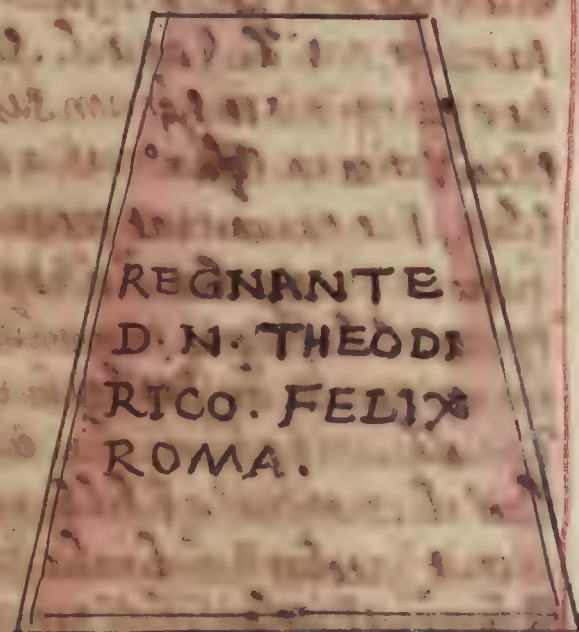 REGNANTE
D. N. THEODE
RICO. FELIX
ROMA.